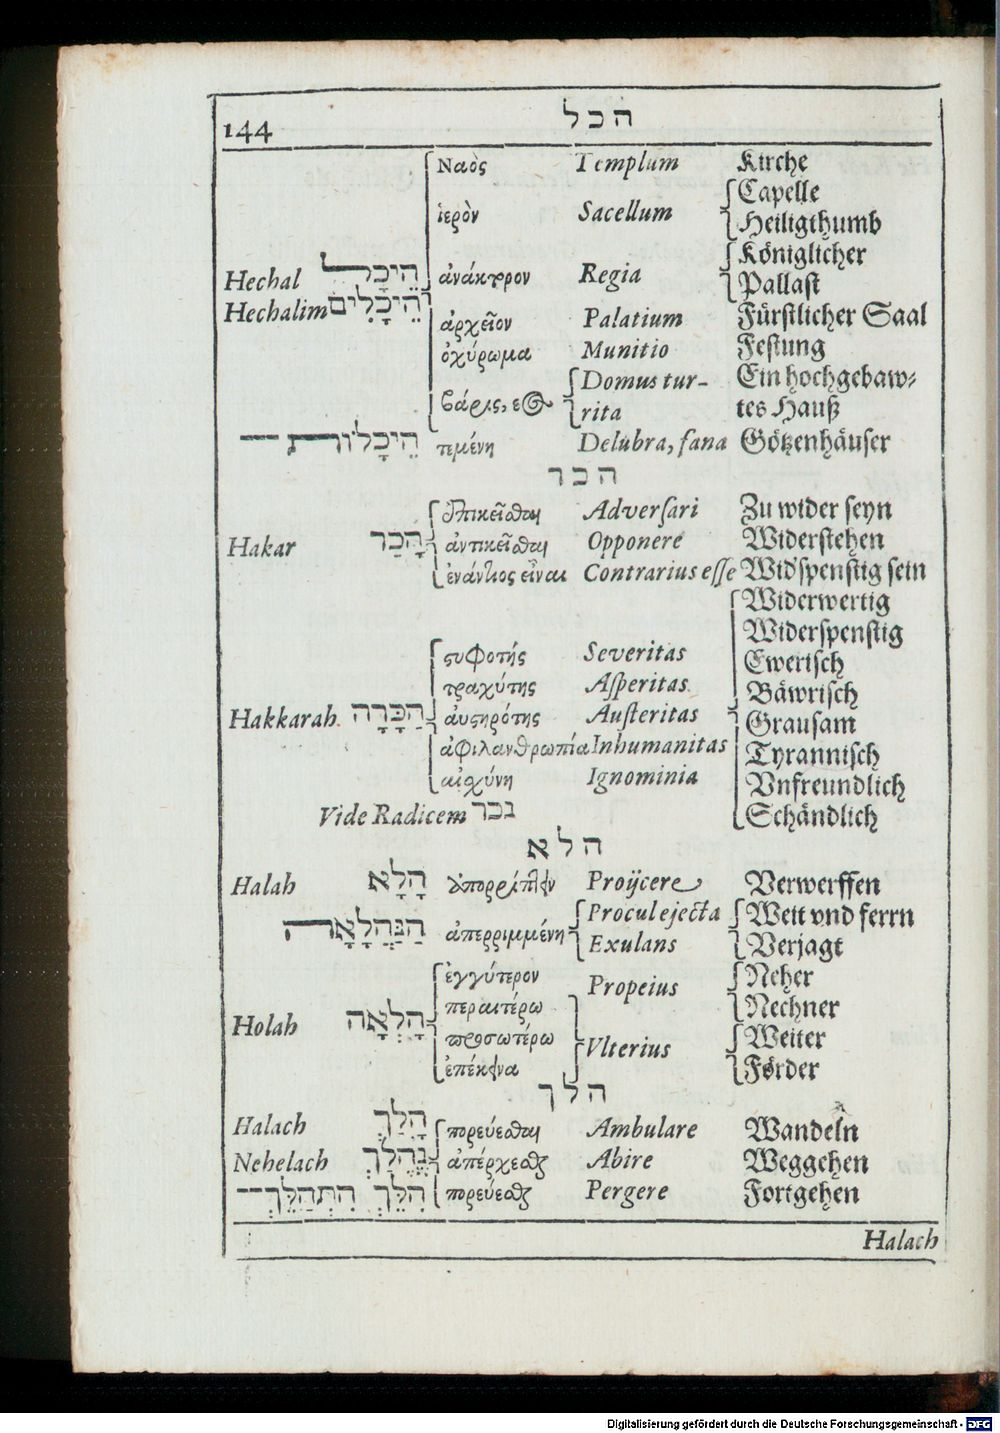 144 הכל
Ναὸς Templum Kirche
Capelle
ἱερὸν Sacellum Heiligthumb
Königlicher
Hechal הֵיכָל ἀνάκτρον Regia Pallast
Hechalim הֵיכָלִים ἀρχεῖον Palatium Fürstlicher Saal
ὀχύρωμα Munitio Festung
Domus tur- Ein hochgebaw-
βάρις, εως rita tes Hauß
הֵיכָלוֹת τεμένη Delubra, fana Götzenhäuser
הכר
ἐπικεῖσθαι Adversari Zu wider seyn
Hakar הָכַר ἀντικεῖσθαι Opponere Widerstehen
ἐνάντιος εἶναι Contrarius esse Widspenstig sein
Widerwertig
Widerspenstig
ςυφοτής Severitas Ewerisch
τραχύτης Asperitas Bäwrisch
Hakkarah הַכָּרָה αὐςηρότης Austeritas Grausam
ἀφιλανθρωπία Inhumanitas Tyrannisch
αἰσχύνη Ignominia Vnfreundlich
Vide Radicem נכר Schändlich
הלא
Halah הָלָא ἀπορρίπτειν Proijcere Verwerffen
Procul ejecta Weit vnd ferrn
הַנַּהֲלָאָה ἀπερριμμένη Exulans Verjagt
ἐγγύτερον Propeius Neher
περαιτέρω Nechner
Holah הָלְאָה προσωτέρω Vlterius Weiter
ἐπέκεινα Förder
הלך
Halach הָלַךְ πορεύεσθαι Ambulare Wandeln
Nehelach נֶֽהֱלַךְ ἀπέρχεσθαι Abire Weggehen
הִלֵּךְ הִתְהַלֵּךְ πορεύεσθαι Pergere Fortgehen
Halach
Digitalisierung gefördert durch die Deutsche Forschungsgemeinschaft - DFG